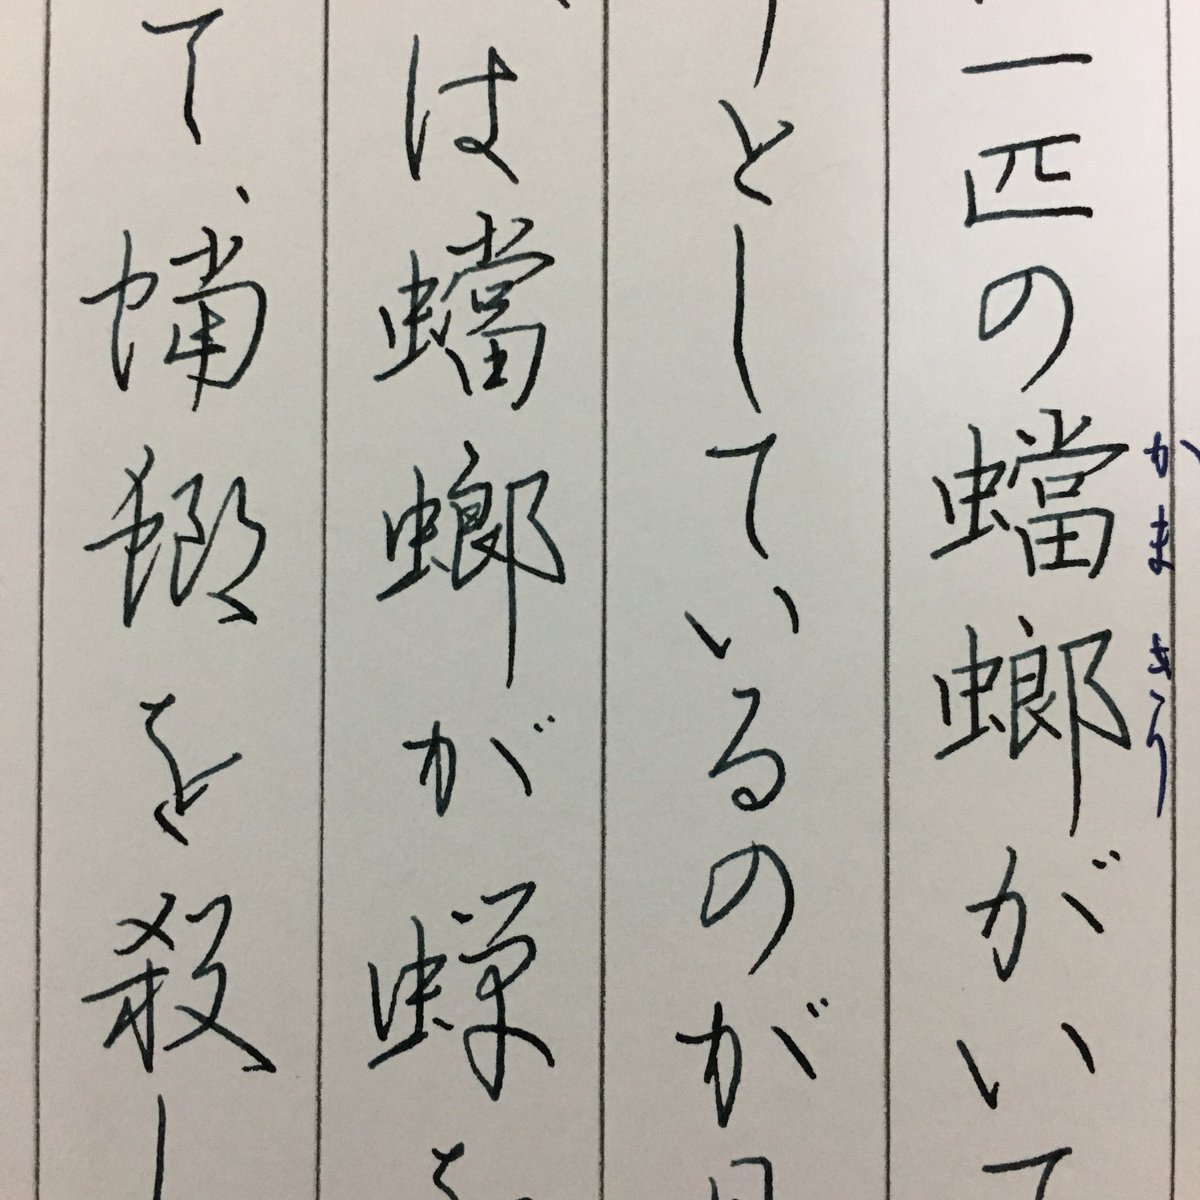 一匹の蟷螂がいて
かまきり
うとしているのが
は蟷螂が蟬を
て、蟷螂を殺し